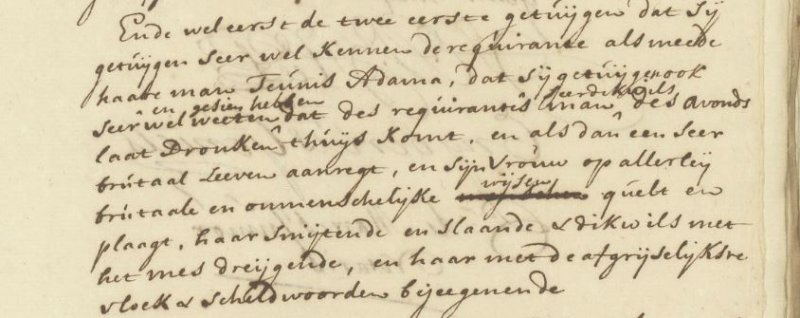 Ende wel eerst de twee eerste getuijgen dat sij
getuijgen seer wel kennen de requirante als meede
haare man Teunis Adama, dat sij getuijgen ook
en gesien hebben seer dikwils
seer wel weeten dat des requirantes man des avonds
laat dronken thuijs komt, en als dan een seer
brutaal leeven aanregt, en sijn vrouw op allerleij
wijsen
brutaale en onmenschelijke quelt en
plaagt, haar smijtende en slaande & dikwils met
het mes dreijgende, en haar met de afgrijselijkste
vloek & scheldwoorden bejeegenende